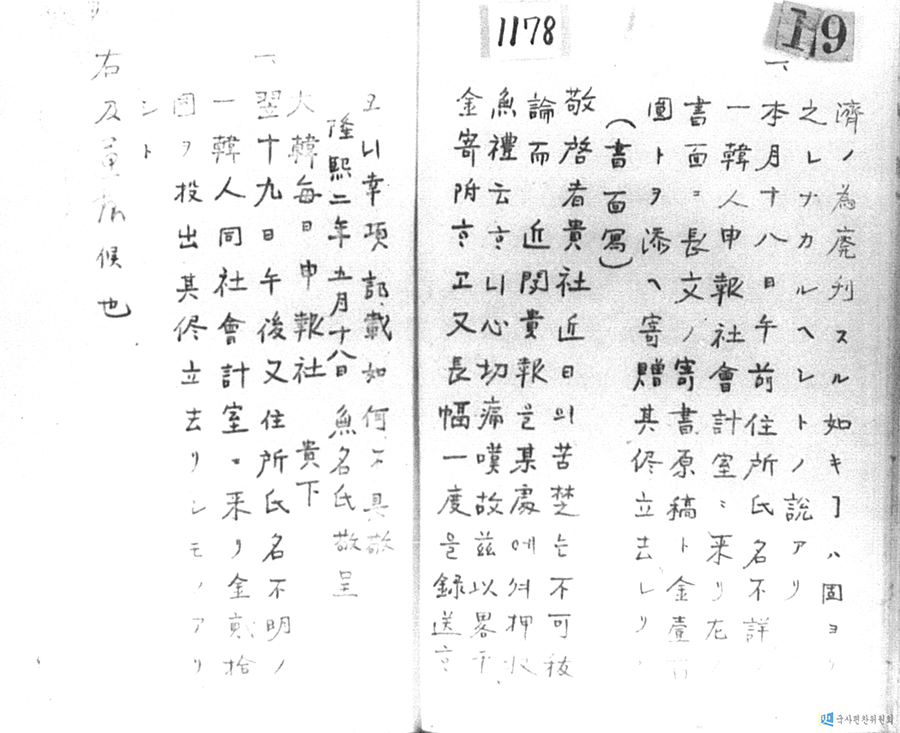 1178
19
濟ノ為廃刊スル如キヿハ固ヨリ
之レナカルヘシトノ說アリ
一、
本月十八日午前住所氏名不詳ノ
一韓人申報社會計室ニ来リ左ノ
書面ニ長文ノ寄書原稿ト金壹百
圜トヲ添ヘ寄贈其侭立去レリ
(書面寫)
敬啓者貴社近日의苦楚는不可秡
論而近閱貴報을某處에셔押收
魚禮云ᄒᆞ니心切痛嘆故玆以畧干
金寄附ᄒᆞ고又長幅一度을錄送ᄒᆞ
오니幸項記載如何不具敬
隆熙二年五月十八日 魚名氏敬呈
大韓每日申報社 貴下
一、
翌十九日午後又住所氏名不明ノ
一韓人同社會計室ニ来リ金貳拾
圜ヲ投出其侭立去リシモノアリ
シト
右及 候也
국사편찬위원회